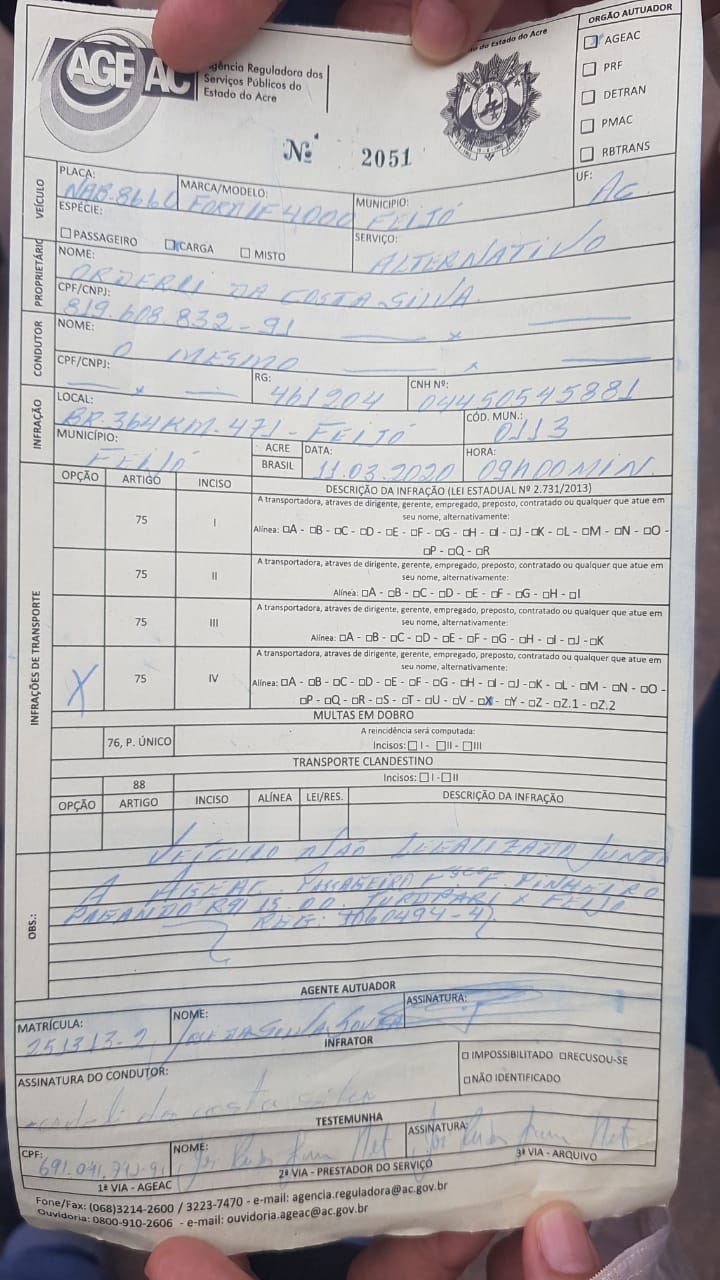 AGEAC
Agência Reguladora dos
Serviços Públicos do
Estado do Acre
do Estado do Acre
Nº 2051
ORGÃO AUTUADOR
AGEAC
PRF
DETRAN
PMAC
RBTRANS
VEÍCULO
PLACA:
MARCA/MODELO: FORD/F4000
MUNICIPIO: FEIJÓ
UF: AC
ESPÉCIE:
☐PASSAGEIRO ☒CARGA ☐MISTO
SERVIÇO: ALTERNATIVO
PROPRIETÁRIO
NOME: DA COSTA SILVA
CPF/CNPJ: 819.608.832-91
CONDUTOR
NOME: O MESMO
CPF/CNPJ: — x —
RG: 461204
CNH Nº: 04450545881
INFRAÇÃO
LOCAL: BR.364 KM.471-FEIJÓ
CÓD. MUN.: 0113
MUNICÍPIO: FEIJÓ
ACRE
BRASIL
DATA: 11.03.2020
HORA: 09H00MIN.
INFRAÇÕES DE TRANSPORTE
OPÇÃO ARTIGO INCISO DESCRIÇÃO DA INFRAÇÃO (LEI ESTADUAL Nº 2.731/2013)
75 I A transportadora, atraves de dirigente, gerente, empregado, preposto, contratado ou qualquer que atue em
seu nome, alternativamente:
Alínea: ☐A - ☐B - ☐C - ☐D - ☐E - ☐F - ☐G - ☐H - ☐I - ☐J - ☐K - ☐L - ☐M - ☐N - ☐O -
☐P - ☐Q - ☐R
75 II A transportadora, atraves de dirigente, gerente, empregado, preposto, contratado ou qualquer que atue em
seu nome, alternativamente:
Alínea: ☐A - ☐B - ☐C - ☐D - ☐E - ☐F - ☐G - ☐H - ☐I
75 III A transportadora, atraves de dirigente, gerente, empregado, preposto, contratado ou qualquer que atue em
seu nome, alternativamente:
Alínea: ☐A - ☐B - ☐C - ☐D - ☐E - ☐F - ☐G - ☐H - ☐I - ☐J - ☐K
X 75 IV A transportadora, atraves de dirigente, gerente, empregado, preposto, contratado ou qualquer que atue em
seu nome, alternativamente:
Alínea: ☐A - ☐B - ☐C - ☐D - ☐E - ☐F - ☐G - ☐H - ☐I - ☐J - ☐K - ☐L - ☐M - ☐N - ☐O -
☐P - ☐Q - ☐R - ☐S - ☐T - ☐U - ☐V - ☐X - ☐Y - ☐Z - ☐Z.1 - ☐Z.2
MULTAS EM DOBRO
76, P. ÚNICO A reincidência será computada:
Incisos: ☐ I - ☐II - ☐III
TRANSPORTE CLANDESTINO
88 Incisos: ☐I - ☐II
OPÇÃO ARTIGO INCISO ALÍNEA LEI/RES. DESCRIÇÃO DA INFRAÇÃO
OBS.:
VEÍCULO NÃO LEGALIZADA JUNTO
A AGEAC. PASSAGEIRO PINHEIRO
PAGANDO R$ 15.00. X FEIJÓ
AGENTE AUTUADOR
MATRÍCULA: 251313-2
NOME:
ASSINATURA:
INFRATOR
ASSINATURA DO CONDUTOR: da costa silva
☐ IMPOSSIBILITADO ☐RECUSOU-SE
☐NÃO IDENTIFICADO
TESTEMUNHA
CPF:
NOME:
ASSINATURA:
1ª VIA - AGEAC 2ª VIA - PRESTADOR DO SERVIÇO 3ª VIA - ARQUIVO
Fone/Fax: (068)3214-2600 / 3223-7470 - e-mail: agencia.reguladora@ac.gov.br
Ouvidoria: 0800-910-2606 - e-mail: ouvidoria.ageac@ac.gov.br